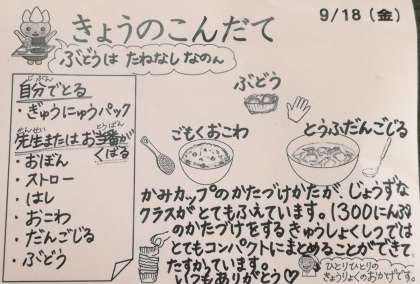 きょうのこんだて
9/18(金)
ぶどうは たねなし なのん
自分でとる
じぶん
・ぎゅうにゅうパック
先生または お当番が
せんせい とうばん
くばる
・おぼん
・ストロー
・はし
・おこわ
・だんごじる
・ぶどう
ぶどう
ごもくおこわ
とうふだんごじる
かみカップのかたづけかたが、じょうずな
クラスがとてもふえています。1300にんぶん
のかたづけをするきゅうしょくしつでは
とてもコンパクトにまとめることができて、
たすかっています。
いつもありがとう♡
ひとりひとりの
きょうりょくのおかげです。